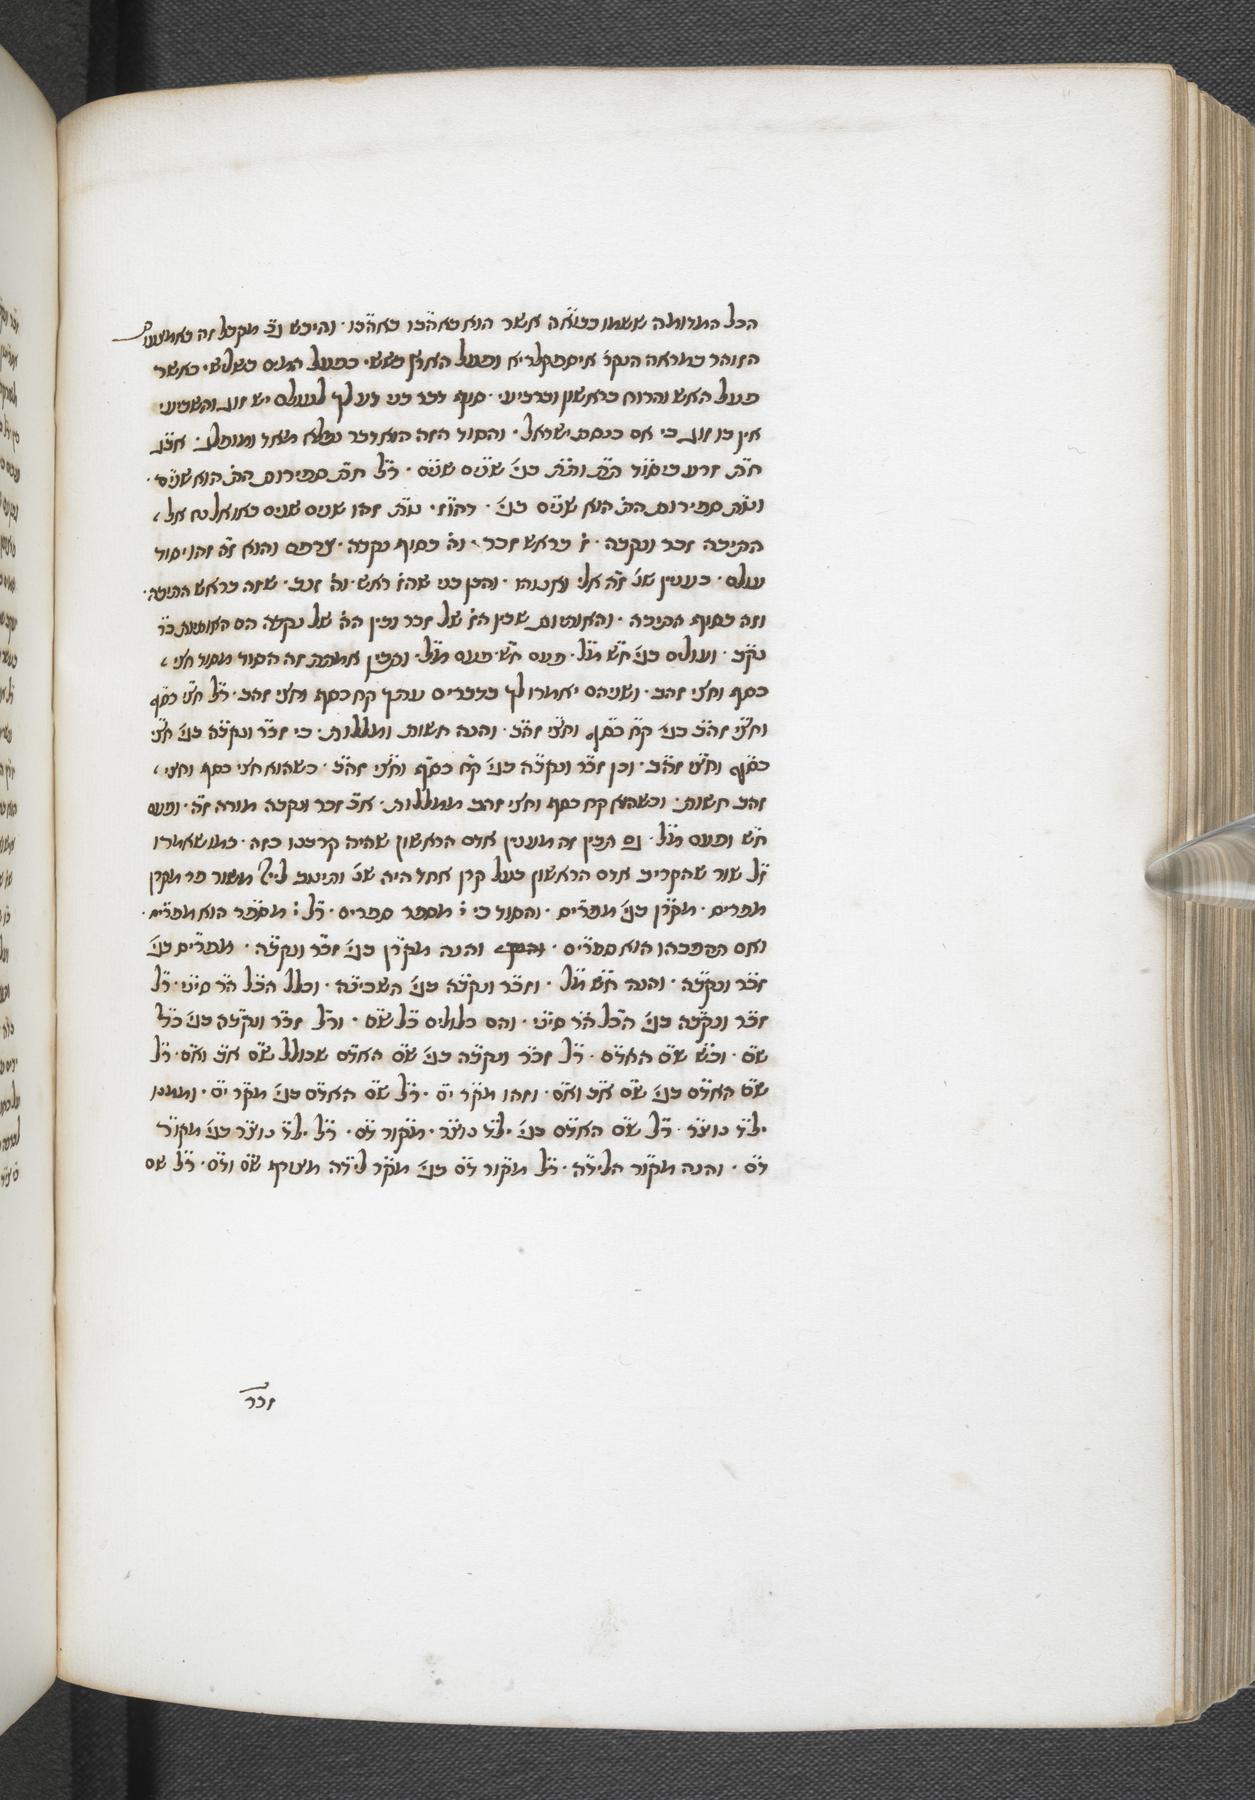 הכל המדומה ששמו כבו״אה אשר הוא כאהבו כאהבו · והיבש נ״ב מקבל זה באמצעו׳
הזוהר במראה הנקר׳ איספקלריא ופועל הארץ בשש · כפועל המים בשליש · כאשר
פועל האש והרוח בראשון וברביעי · סוף דבר בני דע לך לעולם יש זוג והשביעי
אין בו זוג כי אם כנסת ישראל · והסוד הזה הוא דבר נפלא מאד ומופלג · אב״ג
ח״ת זרע ביסוד הת״ת והת״ת בגי׳ שנים שנים · ר״ל ח״ת ספירות הה״ הוא שנים ·
וג״ת ספירות הה״ הוא שנים בגי׳ · דהו״ז · ג״ת זהו שנים שנים באו אל נח אל
התיבה זכר ונקבה · ז׳ בראש זכר · וה׳ בסוף נקבה · צרפם והוא ז״ה זהו יסוד
עולם · כענין שנ׳ ז״ה אלי ואנוהו · והבן בני שהז׳ ראש · וה׳ זנב · שזה בראש התיבה ·
וזה בסוף התיבה · והאותיות שבין הז׳ של זכר ובין הה׳ של נקבה הם האותיות כ״ר
נק״ב · ועולים בגי׳ ח״ש מ״ל · פעם ח״ש פעם מ״ל · והבין אמתת זה הסוד מסוד חצי
כסף וחצי זהב · ושניהם יאמרו לך בדברים ערוך קח כסף וחצי זהב · ר״ל חצ״י כס״ף
וחצ״י זה״ב בגי׳ ק״ח כס״ף וחצ״י זה״ב · והנה חשות ומללות · כי זכ״ר ונקב״ה בגי׳ חצ״י
כס״ף וחצ״י זה״ב · וכן זכ״ר ונקב״ה בגי׳ ק״ח כס״ף וחצ״י זה״ב · כשהוא חצי כסף וחצי
זהב חשות · וכשהוא קח כסף וחצי זהב ממללות · א״כ זכר ונקבה מורה ז״ה · ופעם
ח״ש ופעם מ״ל · גם הבין זה מענין אדם הראשון שהיה קרבנו בזה · כמו שאמרו
ז״ל שור שהקריב אדם הראשון בעל קרן אחד היה שנ׳ ותיטב ליי׳ משור פר מקרן
מפריס · מקר״ן בגי׳ מפרי״ס · והסוד כי ג׳ מספר ספרים · ר״ל ג׳ מספ״ר הוא מפרי״ס ·
ואם תהפכהו הוא ספרי״ם · והנה מקר״ן בגי׳ זכ״ר ונקב״ה · מפרי״ס בגי׳
זכ״ר ונקב״ה · והנה ח״ש מ״ל · וזכ״ר ונקב״ה בגי׳ השכינ״ה · וכלל הכ״ל ה״ר סינ״י · ר״ל
זכ״ר ונקב״ה בגי׳ הכ״ל ה״ר סינ״י · והם כלולים כ״ל ש״ם · ור״ל זכ״ר ונקב״ה בגי׳ כ״ל
ש״ם · וב״ש ש״ם האד״ם · ר״ל זכ״ר ונקב״ה בגי׳ ש״ם האד״ם שכולל ש״ם א״ב וא״ם · ר״ל
ש״ם האד״ם בגי׳ ש״ם א״ב וא״ם · וזהו מק״ר י״ם · ר״ל ש״ם האד״ם בגי׳ מק״ר י״ם · וממנו
יל״ד נוצ״ר · ר״ל ש״ם האד״ם בגי׳ יל״ד נוצ״ר · מק״ור ד״ם · ר״ל יל״ד נוצ״ר בגי׳ מקו״ר
ד״ם · והנה מק״ור הליד״ה · ר״ל מק״ור ד״ם בגי׳ מק״ר ליד״ה מצורף ש״ם וד״ם · ר״ל שם
זכר